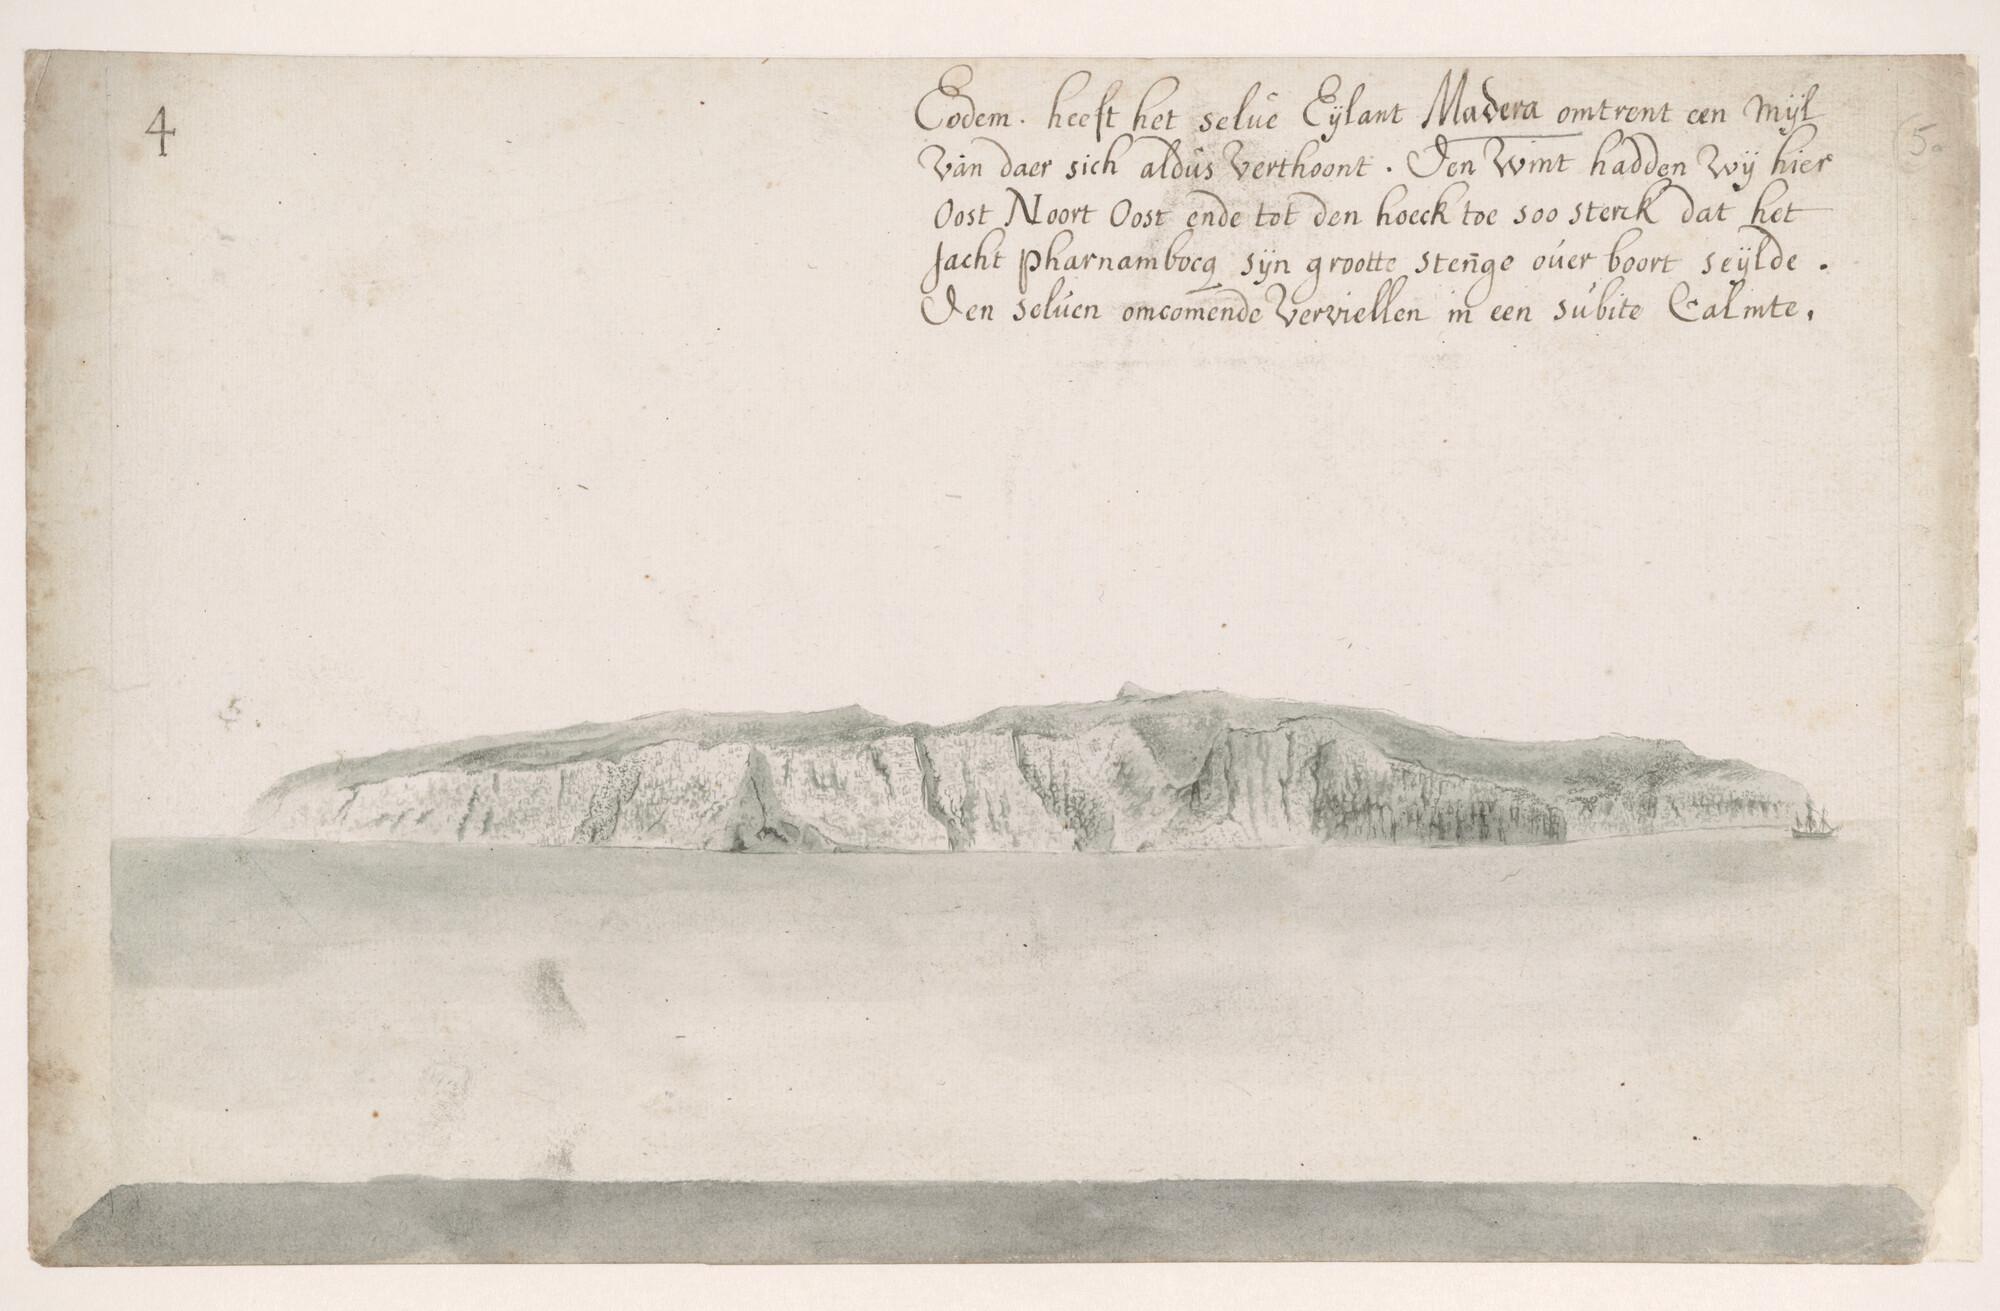 4
Eodem. heeft het selue Eÿlant Madera omtrent een Mÿl
van daer sich aldus verthoont. Den Wint hadden Wÿ hier
Oost Noort Oost ende tot den hoeck toe soo sterck dat het
Jacht Pharnambocq sÿn grootte stenge ouer boort seÿlde.
Den seluen omcomende Verviellen in een subite Calmte.
5a